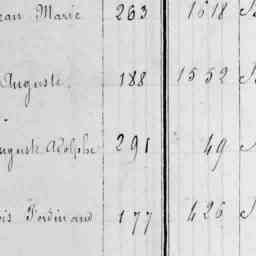 ean Marie 263 1618
Auguste. 188 1552
Auguste Adolphe 291 49
is Ferdinand 177 426